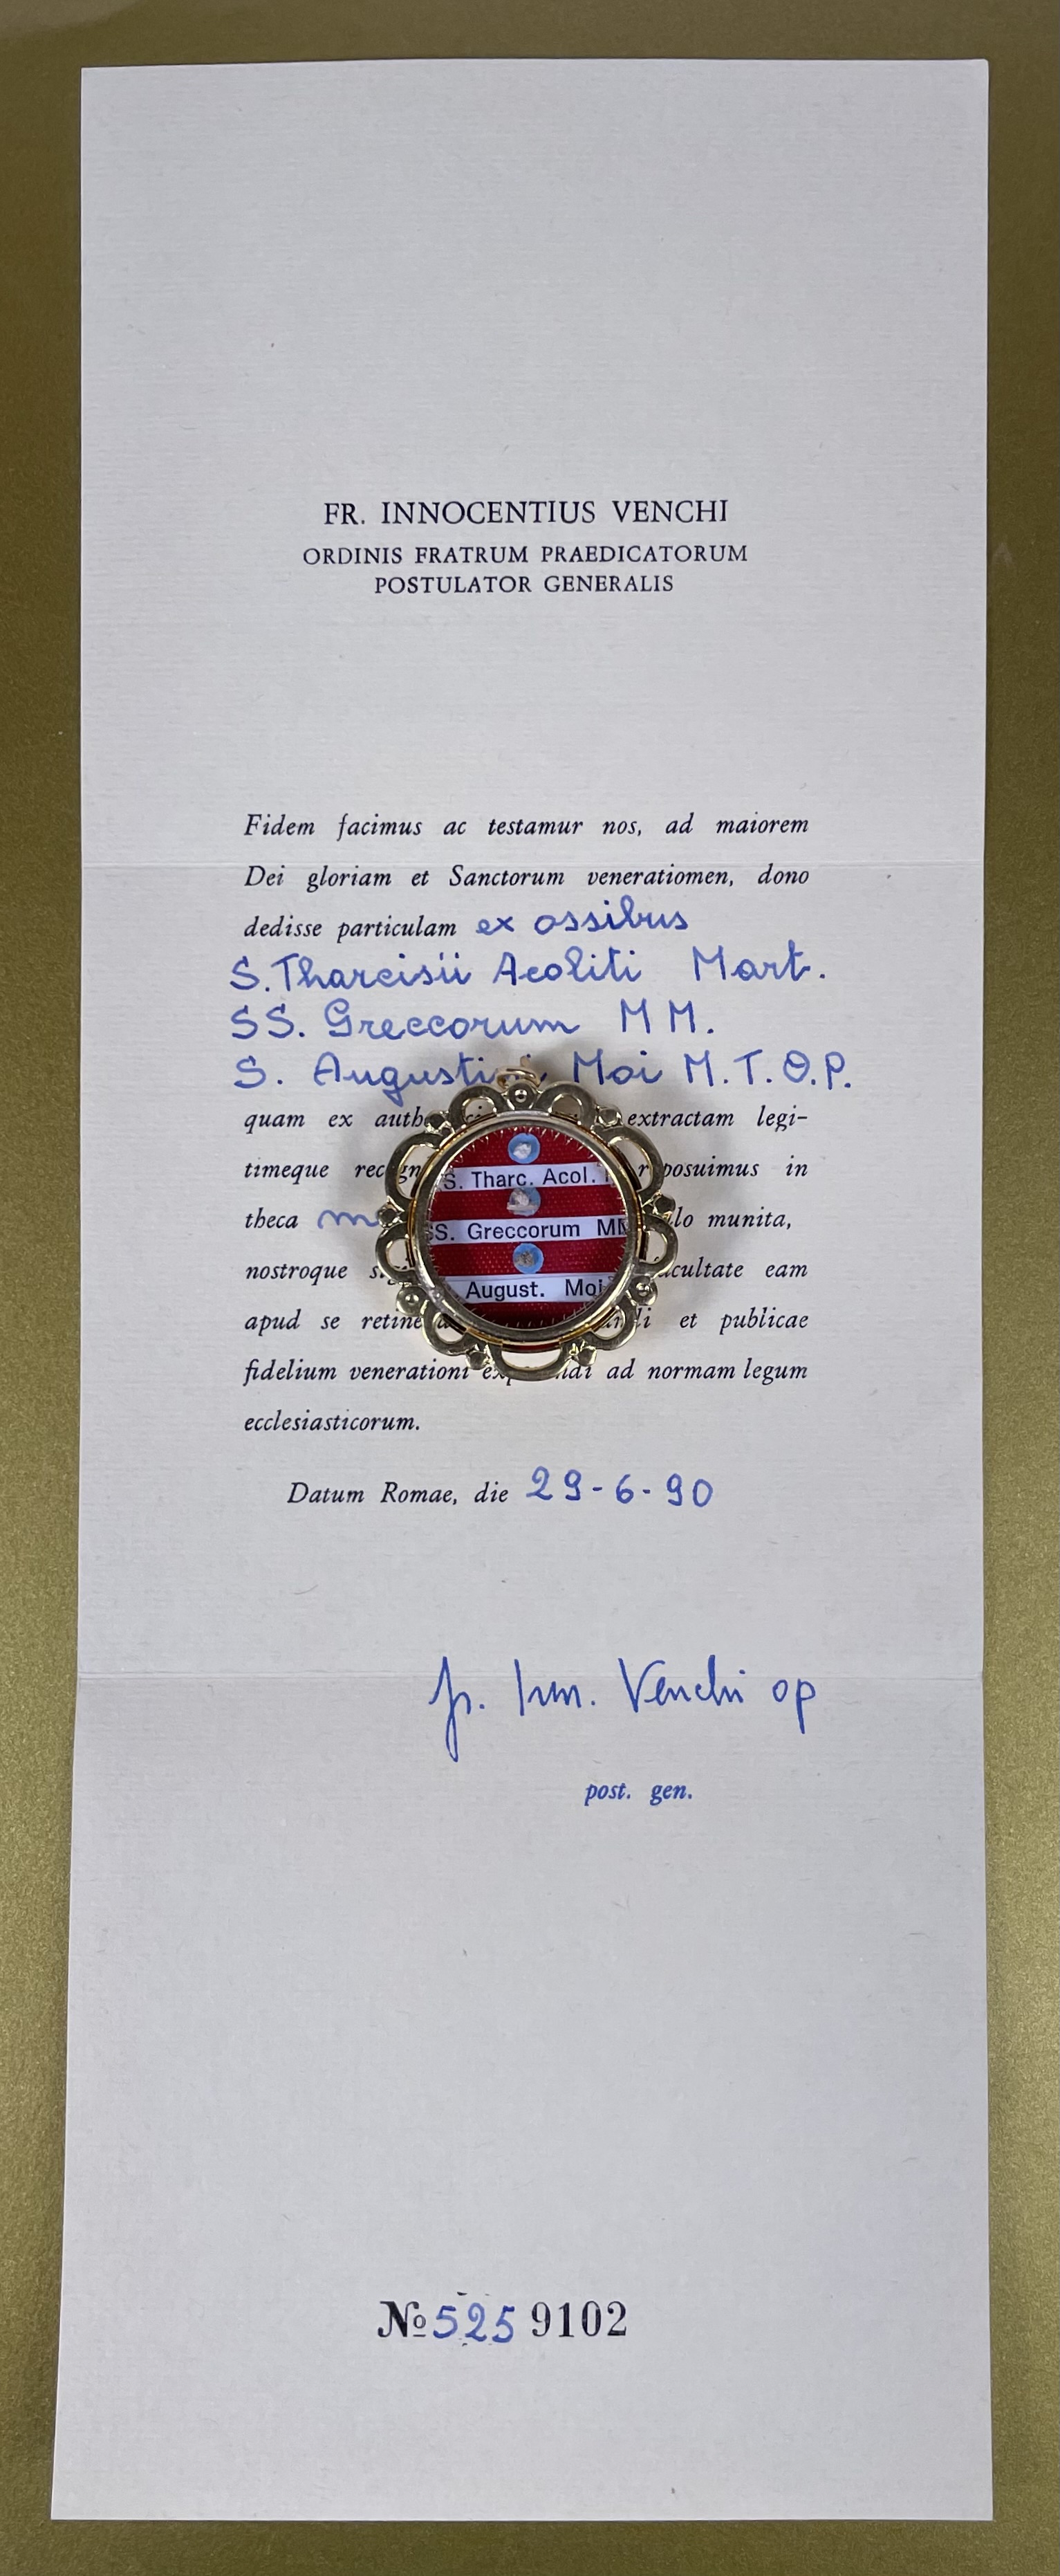 FR. INNOCENTIUS VENCHI
ORDINIS FRATRUM PRAEDICATORUM
POSTULATOR GENERALIS
Fidem facimus ac testamur nos, ad maiorem
Dei gloriam et Sanctorum veneratiomen, dono
dedisse particulam ex ossibus
S. Tharcisii Acoliti Mart.
SS. Greccorum MM.
S. Augusti Moi M.T.O.P.
quam ex auth extractam legi-
timeque posuimus in
theca munita,
nostroque eam
apud se retine et publicae
fidelium venerationi ad normam legum
ecclesiasticorum.
S. Tharc. Acol.
S. Greccorum MM
August. Moi
Datum Romae, die 29-6-90
fr. Inn. Venchi op
post. gen.
No 525 9102